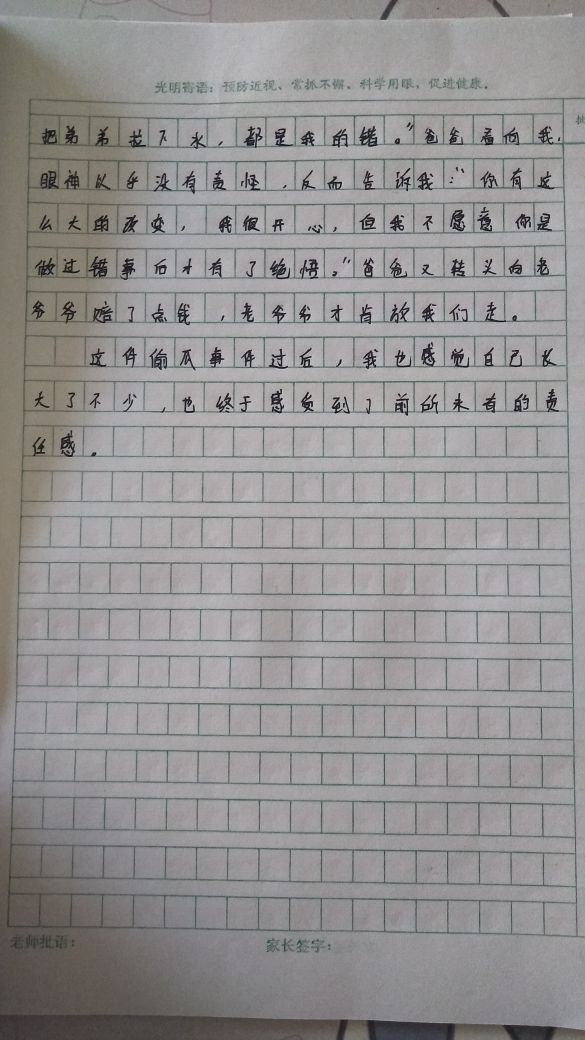 光明寄语：预防近视、常抓不懈、科学用眼、促进健康.
把弟弟拉下水，都是我的错。”爸爸看向我，
眼神似乎没有责怪，反而告诉我：“你有这
么大的改变，我很开心，但我不愿意你是
做过错事后才有了绝悟。”爸爸又转头向老
爷爷赔了点钱，老爷爷才肯放我们走。
这件偷瓜事件过后，我也感觉自己长
大了不少，也终于感负到了前所未有的责
任感。
老师批语：
家长签字：